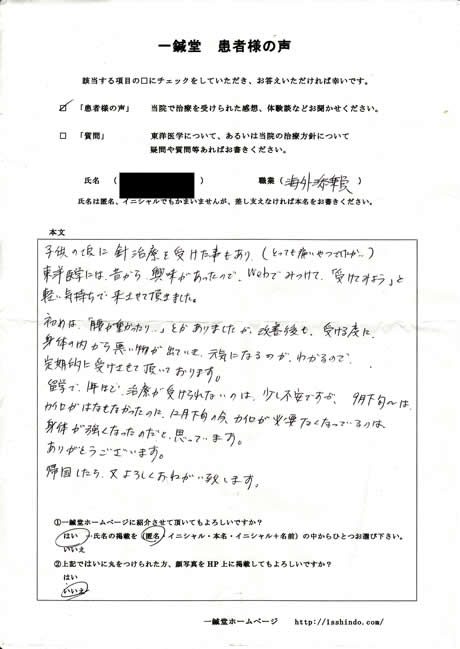 一鍼堂 患者様の声
該当する項目の□にチェックをしていただき、お答えいただければ幸いです。
☑ 「患者様の声」 当院で治療を受けられた感想、体験談などお聞かせください。
□ 「質問」 東洋医学について、あるいは当院の治療方針について
疑問や質問等あればお書きください。
氏名 ( ) 職業 (海外添乗員)
氏名は匿名、イニシャルでもかまいませんが、差し支えなければ本名をお書きください。
本文
子供の頃に針治療を受けた事もあり、(とっても痛いやつでしたが…)
東洋医学には、昔から興味があったので、Webでみつけて、「受けてみよう」と
軽い気持ちで来させて頂きました。
初めは、「腰が重かったり…」とかありましたが、改善後も、受ける度に、
身体の内から悪い物が出ていき、元気になるのが、わかるので、
定期的に受けさせて頂いております。
留学で、1年ほど、治療が受けられないのは、少し不安ですが、9月下旬〜は、
カイロがはなせなかったのに、12月下旬の今、カイロが必要なくなっているのは、
身体が強くなったのだと、思っています。
ありがとうございます。
帰国したら、又よろしくおねがい致します。
①一鍼堂ホームページに紹介させて頂いてもよろしいですか？
はい →氏名の掲載を（匿名・イニシャル・本名・イニシャル＋名前）の中からひとつお選び下さい。
いいえ
②上記ではいに丸をつけられた方、顔写真をHP上に掲載してもよろしいですか？
はい
いいえ
一鍼堂ホームページ http://isshindo.com/